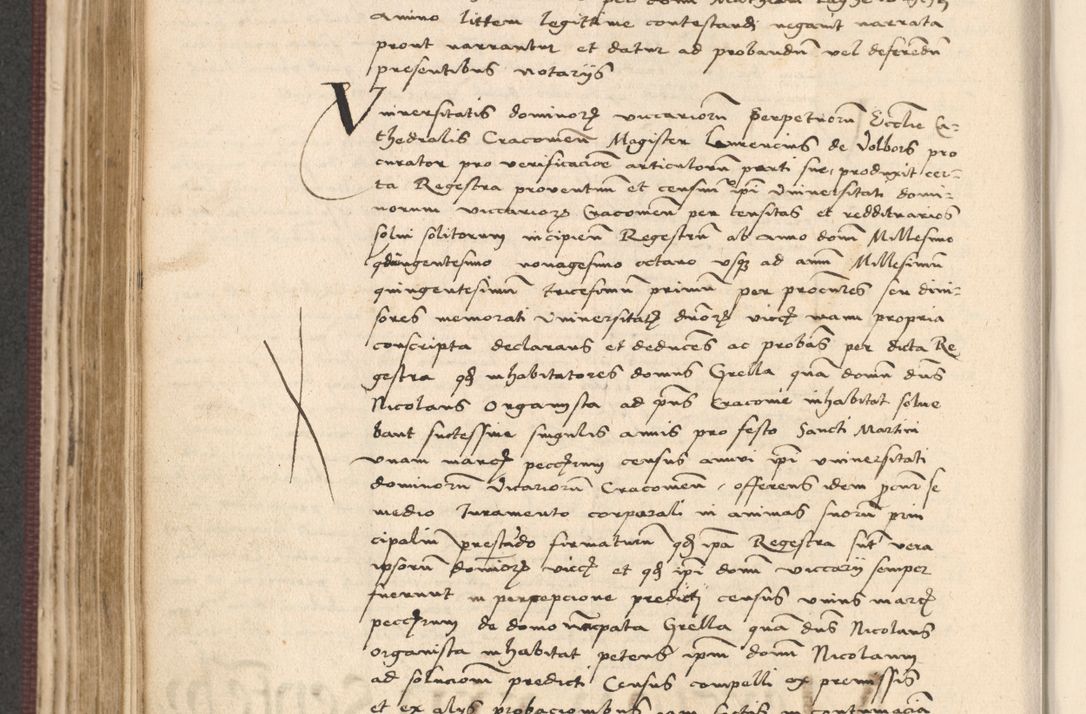 animo littem legittime contestandi negavit narrata
prout narrantur et datur ad probandū vel deferendū
presentibus notarijs
Vniversitatis dominorꝫ viccariorū Perpetuorū Ecclīe Ca-
thedralis Cracovień Magister Laurencius de Volbors pro
curator pro verificacioē articulorū parti sue, produxit cer-
ta Regestra proventuū et censuū ipī Vniversitati domi-
norum viccariorꝫ Cracovień per censitas et reddituarios
solvi solitorum incipień Regestrū ab anno domī Millesimo
quadringentesimo nonagesimo octavo vsqꝫ ad annū Millesimū
quingentesimū tricesimū primū per procūres seu divi-
sores memorati Vniversitatꝭ dnōrꝫ viccꝭ manu propria
conscripta declarans et deducēs ac probās per dicta Re
gestra qđ inhabitatores domus Grella quā domū dūs
Nicolaus Organista ad pūs Cracovie inhabitat solve
bant successive singulis annis pro festo Sancti Martini
vnam marcꝭ peccꝭrum census annui ipī vniversitati
dominorū Vicariorū Cracovień, offerens idem pcūr se
medio Iuramento corporali in animas suorū prin
cipaliū prestādo firmaturū qđ ipā Regestra sūt vera
ipsorū dominorꝫ viccꝭ et qđ ipī domī viccarij semper
fuerunt in percepcione predicti census vnius marcꝭ
peccꝭrum de domo nūcpata Grella quā dūs Nicolaus
organista inhabitat petens ipm̄ domī Nicolaum
ad solucionē predicti Census compelli ex premissis
et ex alijs probacionibus